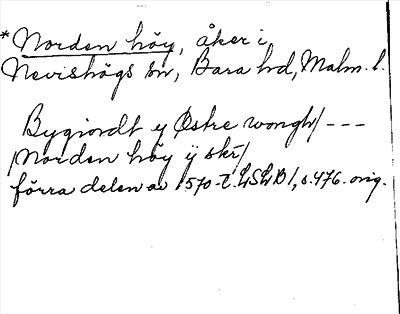 *Norden höy, åker i
Nevishögs sn, Bara hd, Malm. l.
Bygiordt y Østre wongh/ ---
/Norden höy ÿ skr/
förra delen av 1570-t. LSLB 1, s. 476. orig.